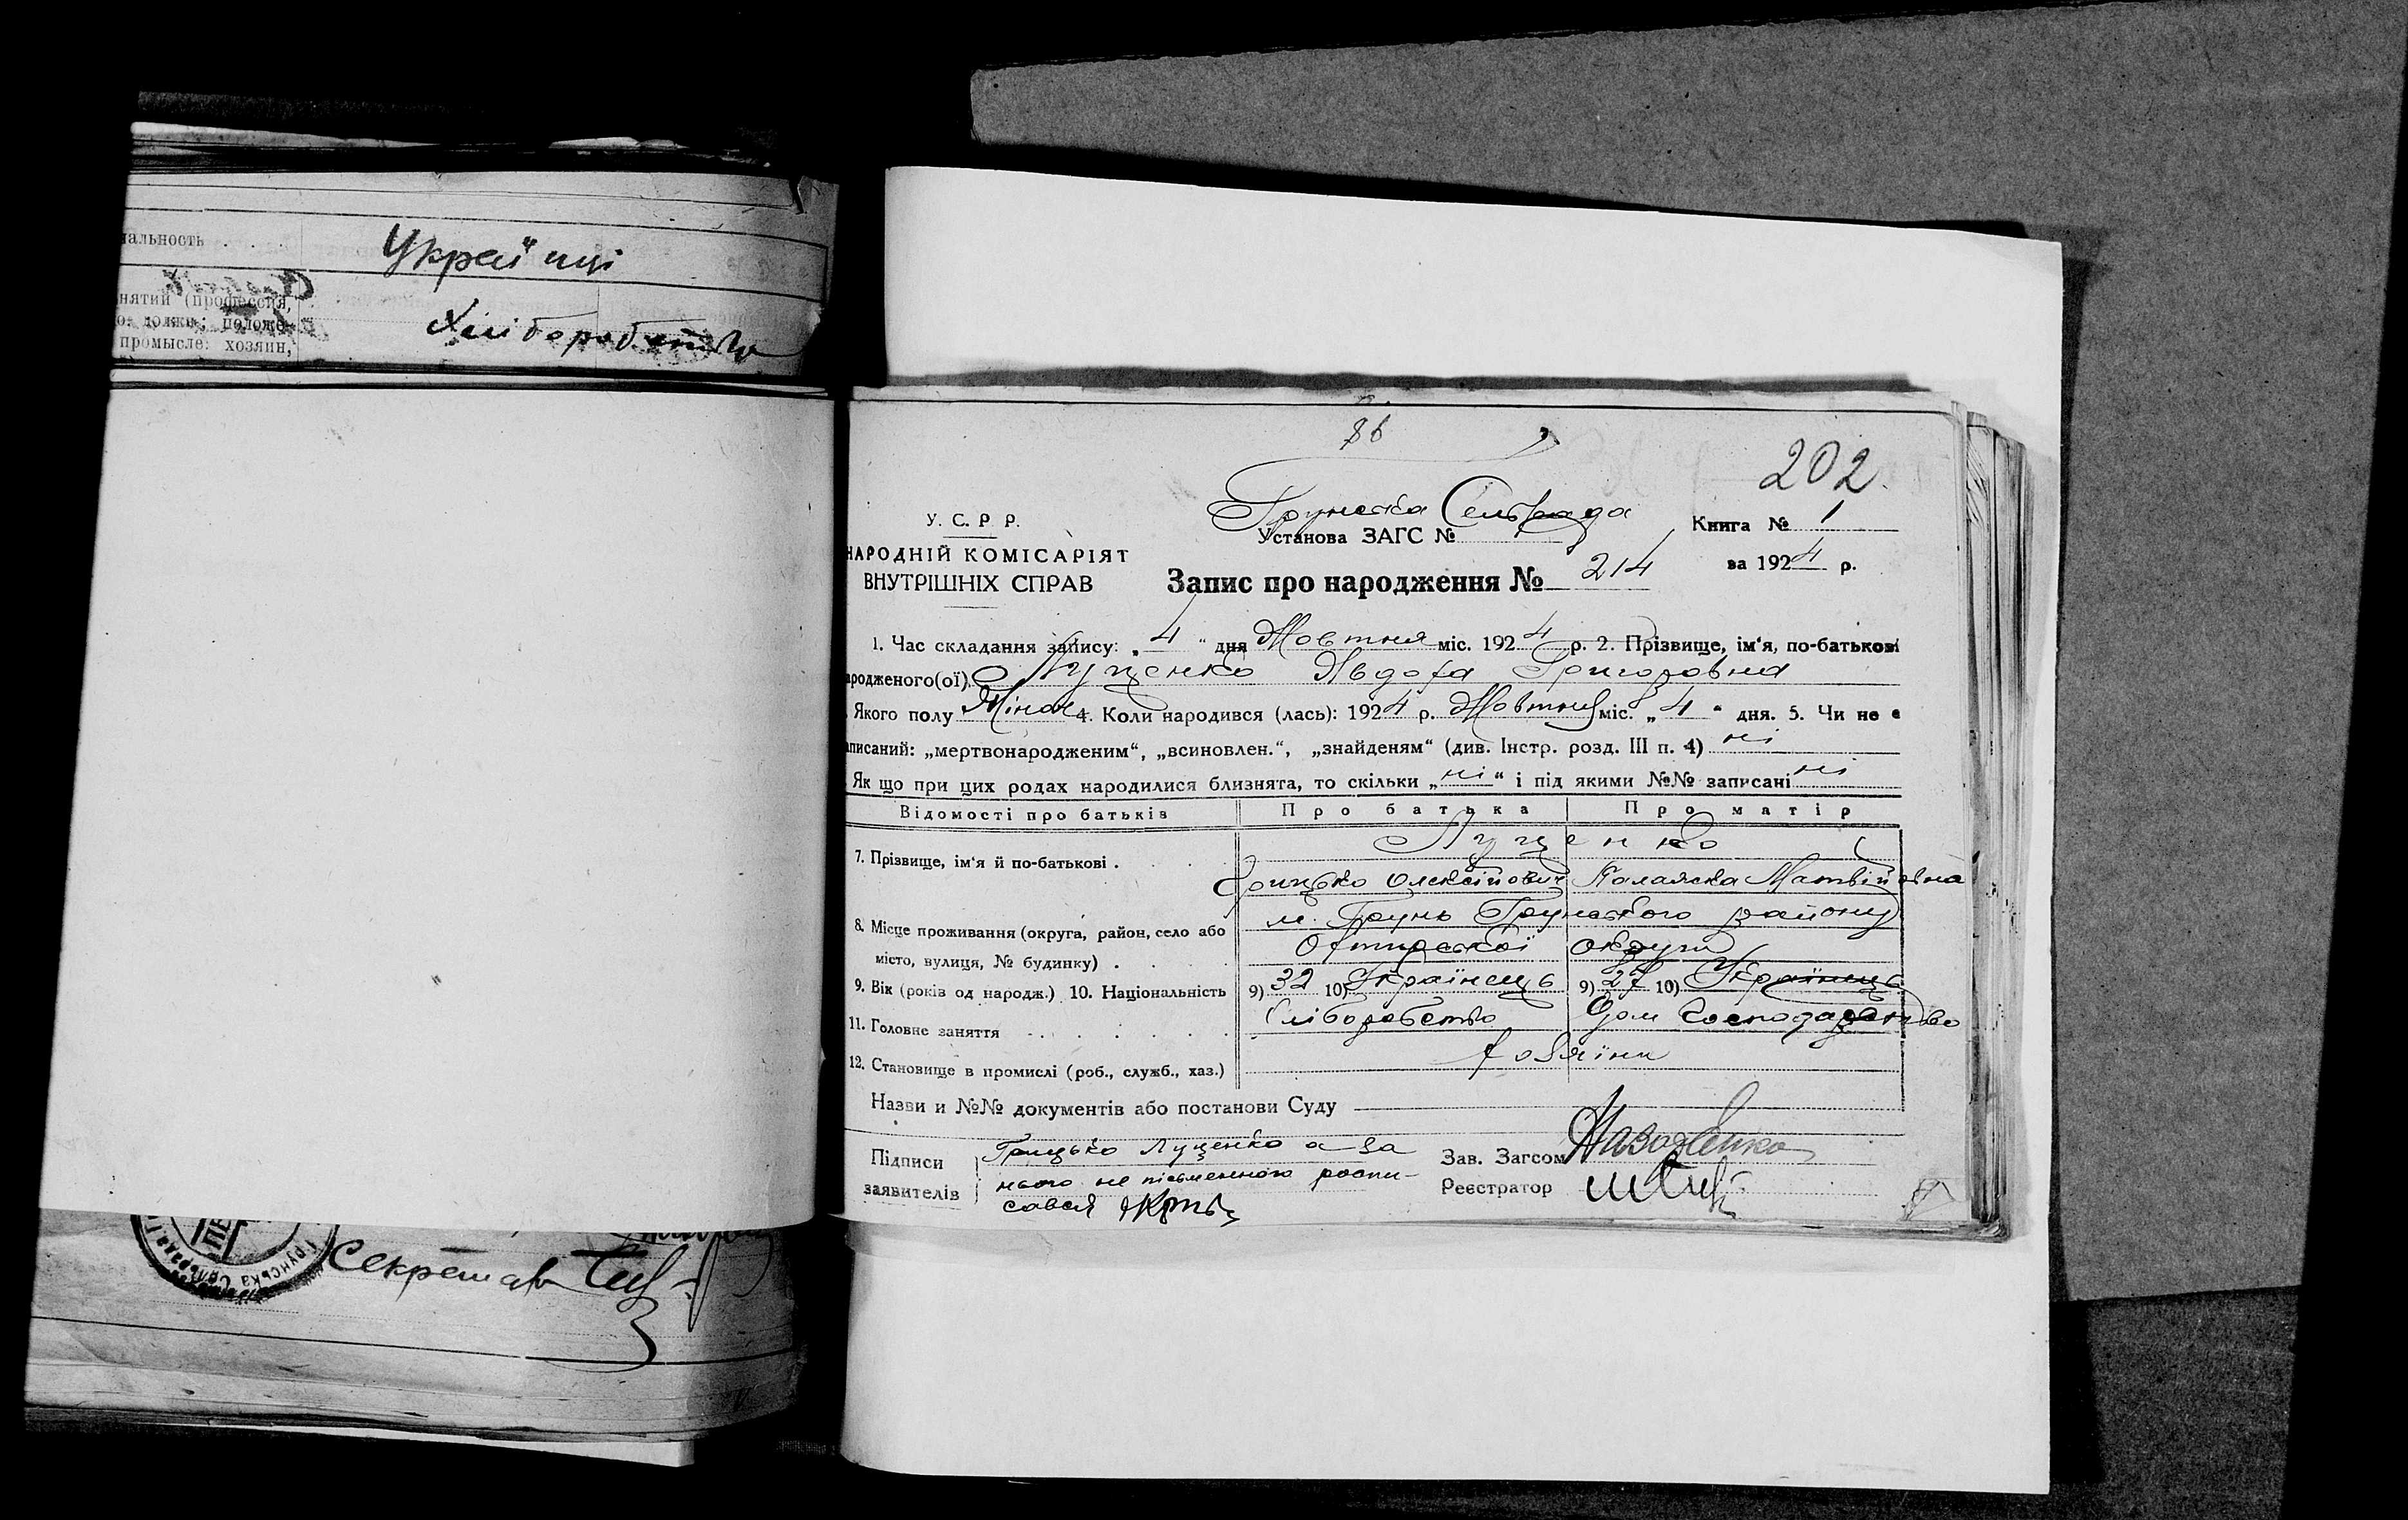 нальность . . . .
Украйнці
нятий (профессия,
о: должн; положе-
промысле: хозяин,
Хліборобство
86
202.
Грунська Сельрада
У. С. Р. Р.
Установа ЗАГС №
Книга № 1
НАРОДНІЙ КОМІСАРІЯТ
ВНУТРІШНІХ СПРАВ
Запис про народження № 214
за 1924 р.
1. Час складання запису: „4“ дня Жовтня міс. 1924 р. 2. Прізвище, ім‘я, по-батькові
ародженого(ої) Луценко Явдоха Григоровна
Якого полу Жіноч 4. Коли народився (лась): 1924 р. Жовтня міс. „4“ дня. 5. Чи не є
аписаний: „мертвонародженим“, „всиновлен.“, „знайденям“ (див. Інстр. розд. III п. 4) ні
Як що при цих родах народилися близнята, то скільки „ні“ і під якими №№ записані ні
Відомості про батьків Про батька Про матір
7. Прізвище, ім‘я й по-батькові . Луценко
Грицько Олексійович Палажка Матвійовна
8. Місце проживання (округа, район, село або м. Грунь Грунського району
місто, вулиця, № будинку) . Охтирської округи
9. Вік (років од народж.) 10. Національність 9) 32 10) Українець 9) 27 10) Українець
11. Головне заняття Хліборобство Дом Господарство
12. Становище в промислі (роб., служб., хаз.) Хозяїни
Назви и №№ документів або постанови Суду
Підписи Грицько Луценко а за
заявителів нього не пісьменного роспи-
сався
Зав. Загсом
Реєстратор
Грунська
Секретар